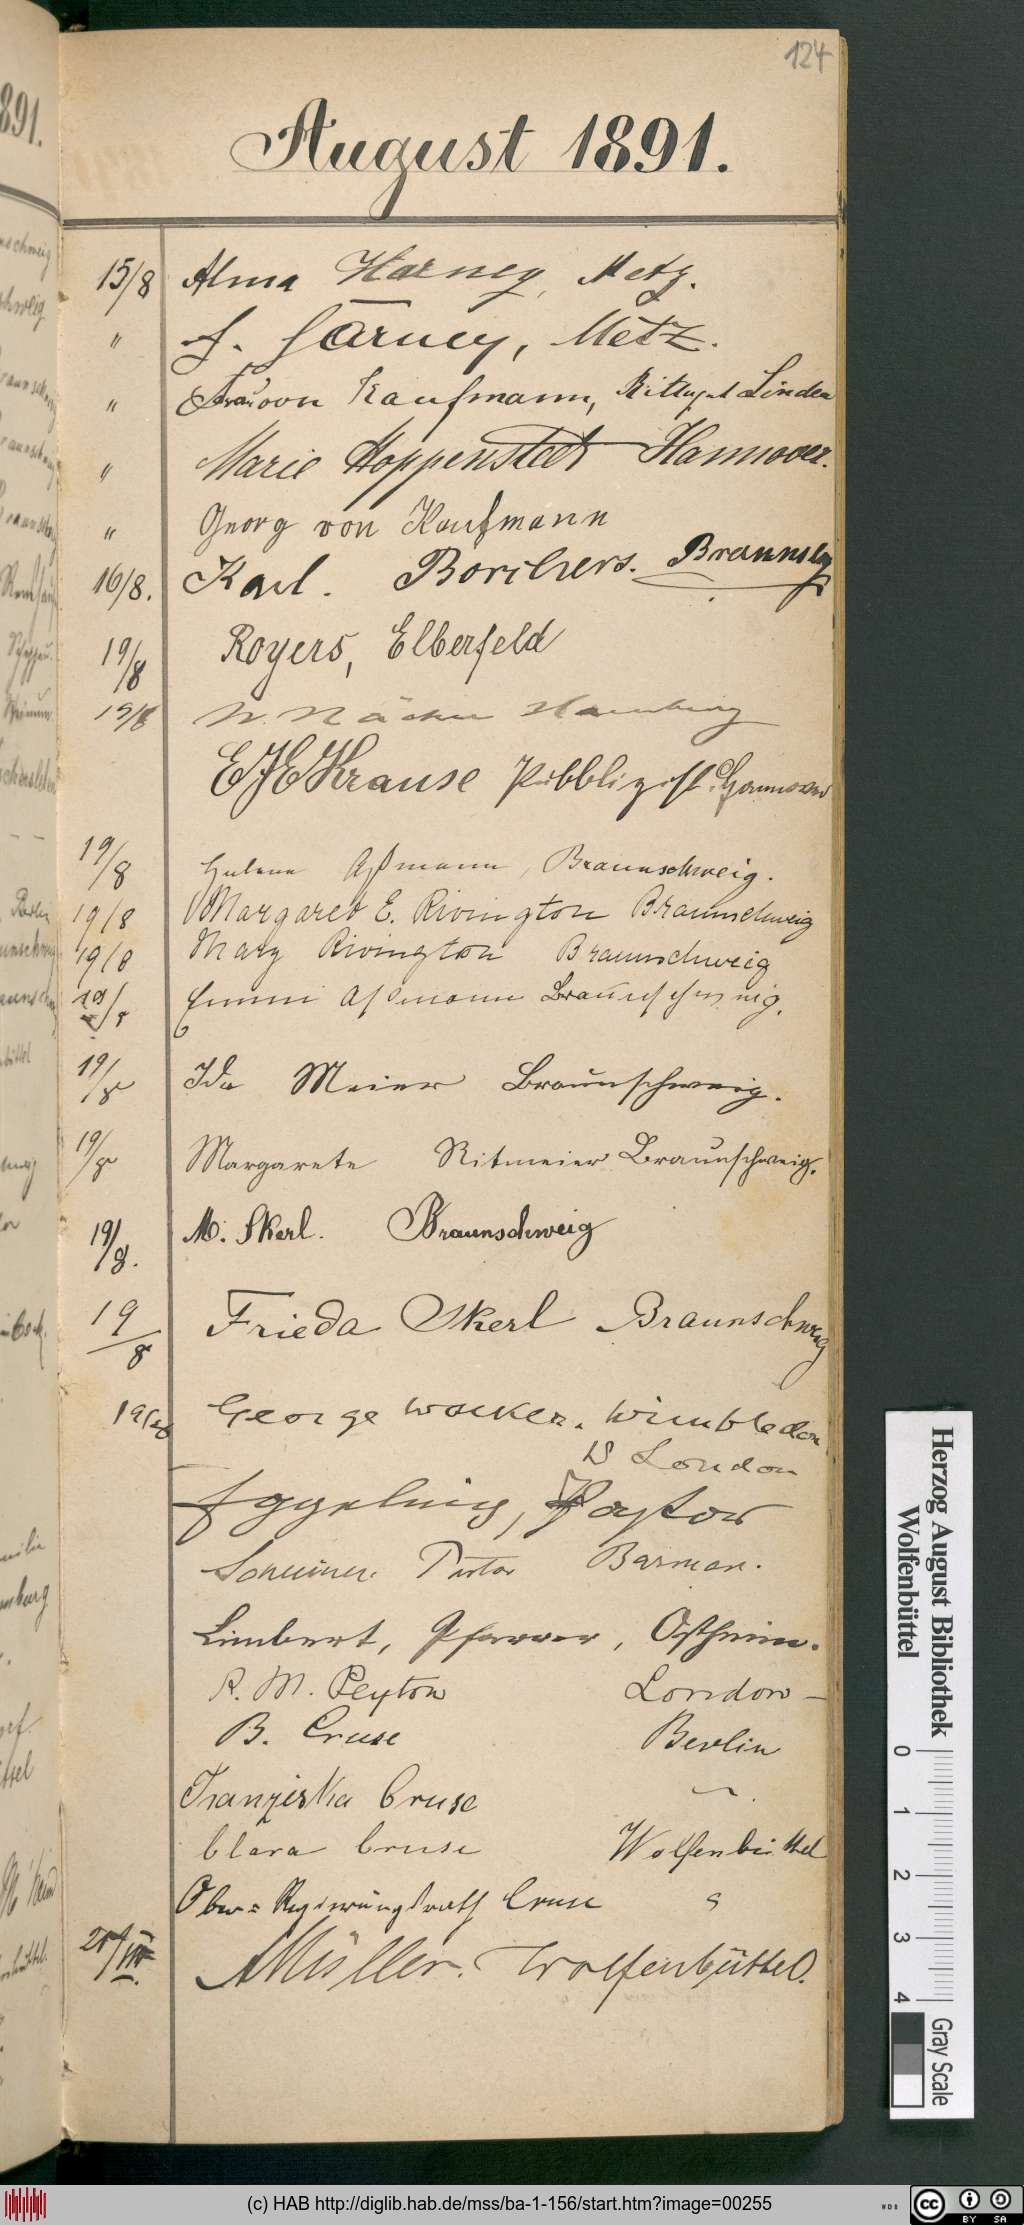 124
August 1891.
15/8 Alma Harney, Metz.
" J. Harney, Metz.
" Frau von Kaufmann, Rittergut Linden
" Marie Hoppenstedt Hannover.
" Georg von Kaufmann
16/8. Karl. Borchers. Braunschg
19/8 Royers, Elberfeld
19/8 Hamburg
E Krause Publizist Hannover
19/8 Helene Aßmann, Braunschweig.
19/8 Margaret E. Rivington Braunschweig
19/8 Mary Rivington Braunschweig
19/8 Emmi Aßmann Braunschweig.
19/8 Ida Meier Braunschweig.
19/8 Margarete Ritmeier Braunschweig.
19/8. M. Skerl. Braunschweig
19/8 Frieda Skerl Braunschweig
19/8 George Walker. Wimbledon
London
Eggeling, Pastor
Pastor Barmen.
Limbert, Pfarrer, Ostheim.
R. M. Peyton London
B. Cruse Berlin
Franziska Cruse "
Clara Cruse Wolfenbüttel
Ober=Regierungsrath Cruse "
20/VIII. A Müller. Wolfenbüttel.
891.
Herzog August Bibliothek
Wolfenbüttel
0 1 2 3 4
Gray Scale
(c) HAB http://diglib.hab.de/mss/ba-1-156/start.htm?image=00255
WDB
cc BY SA